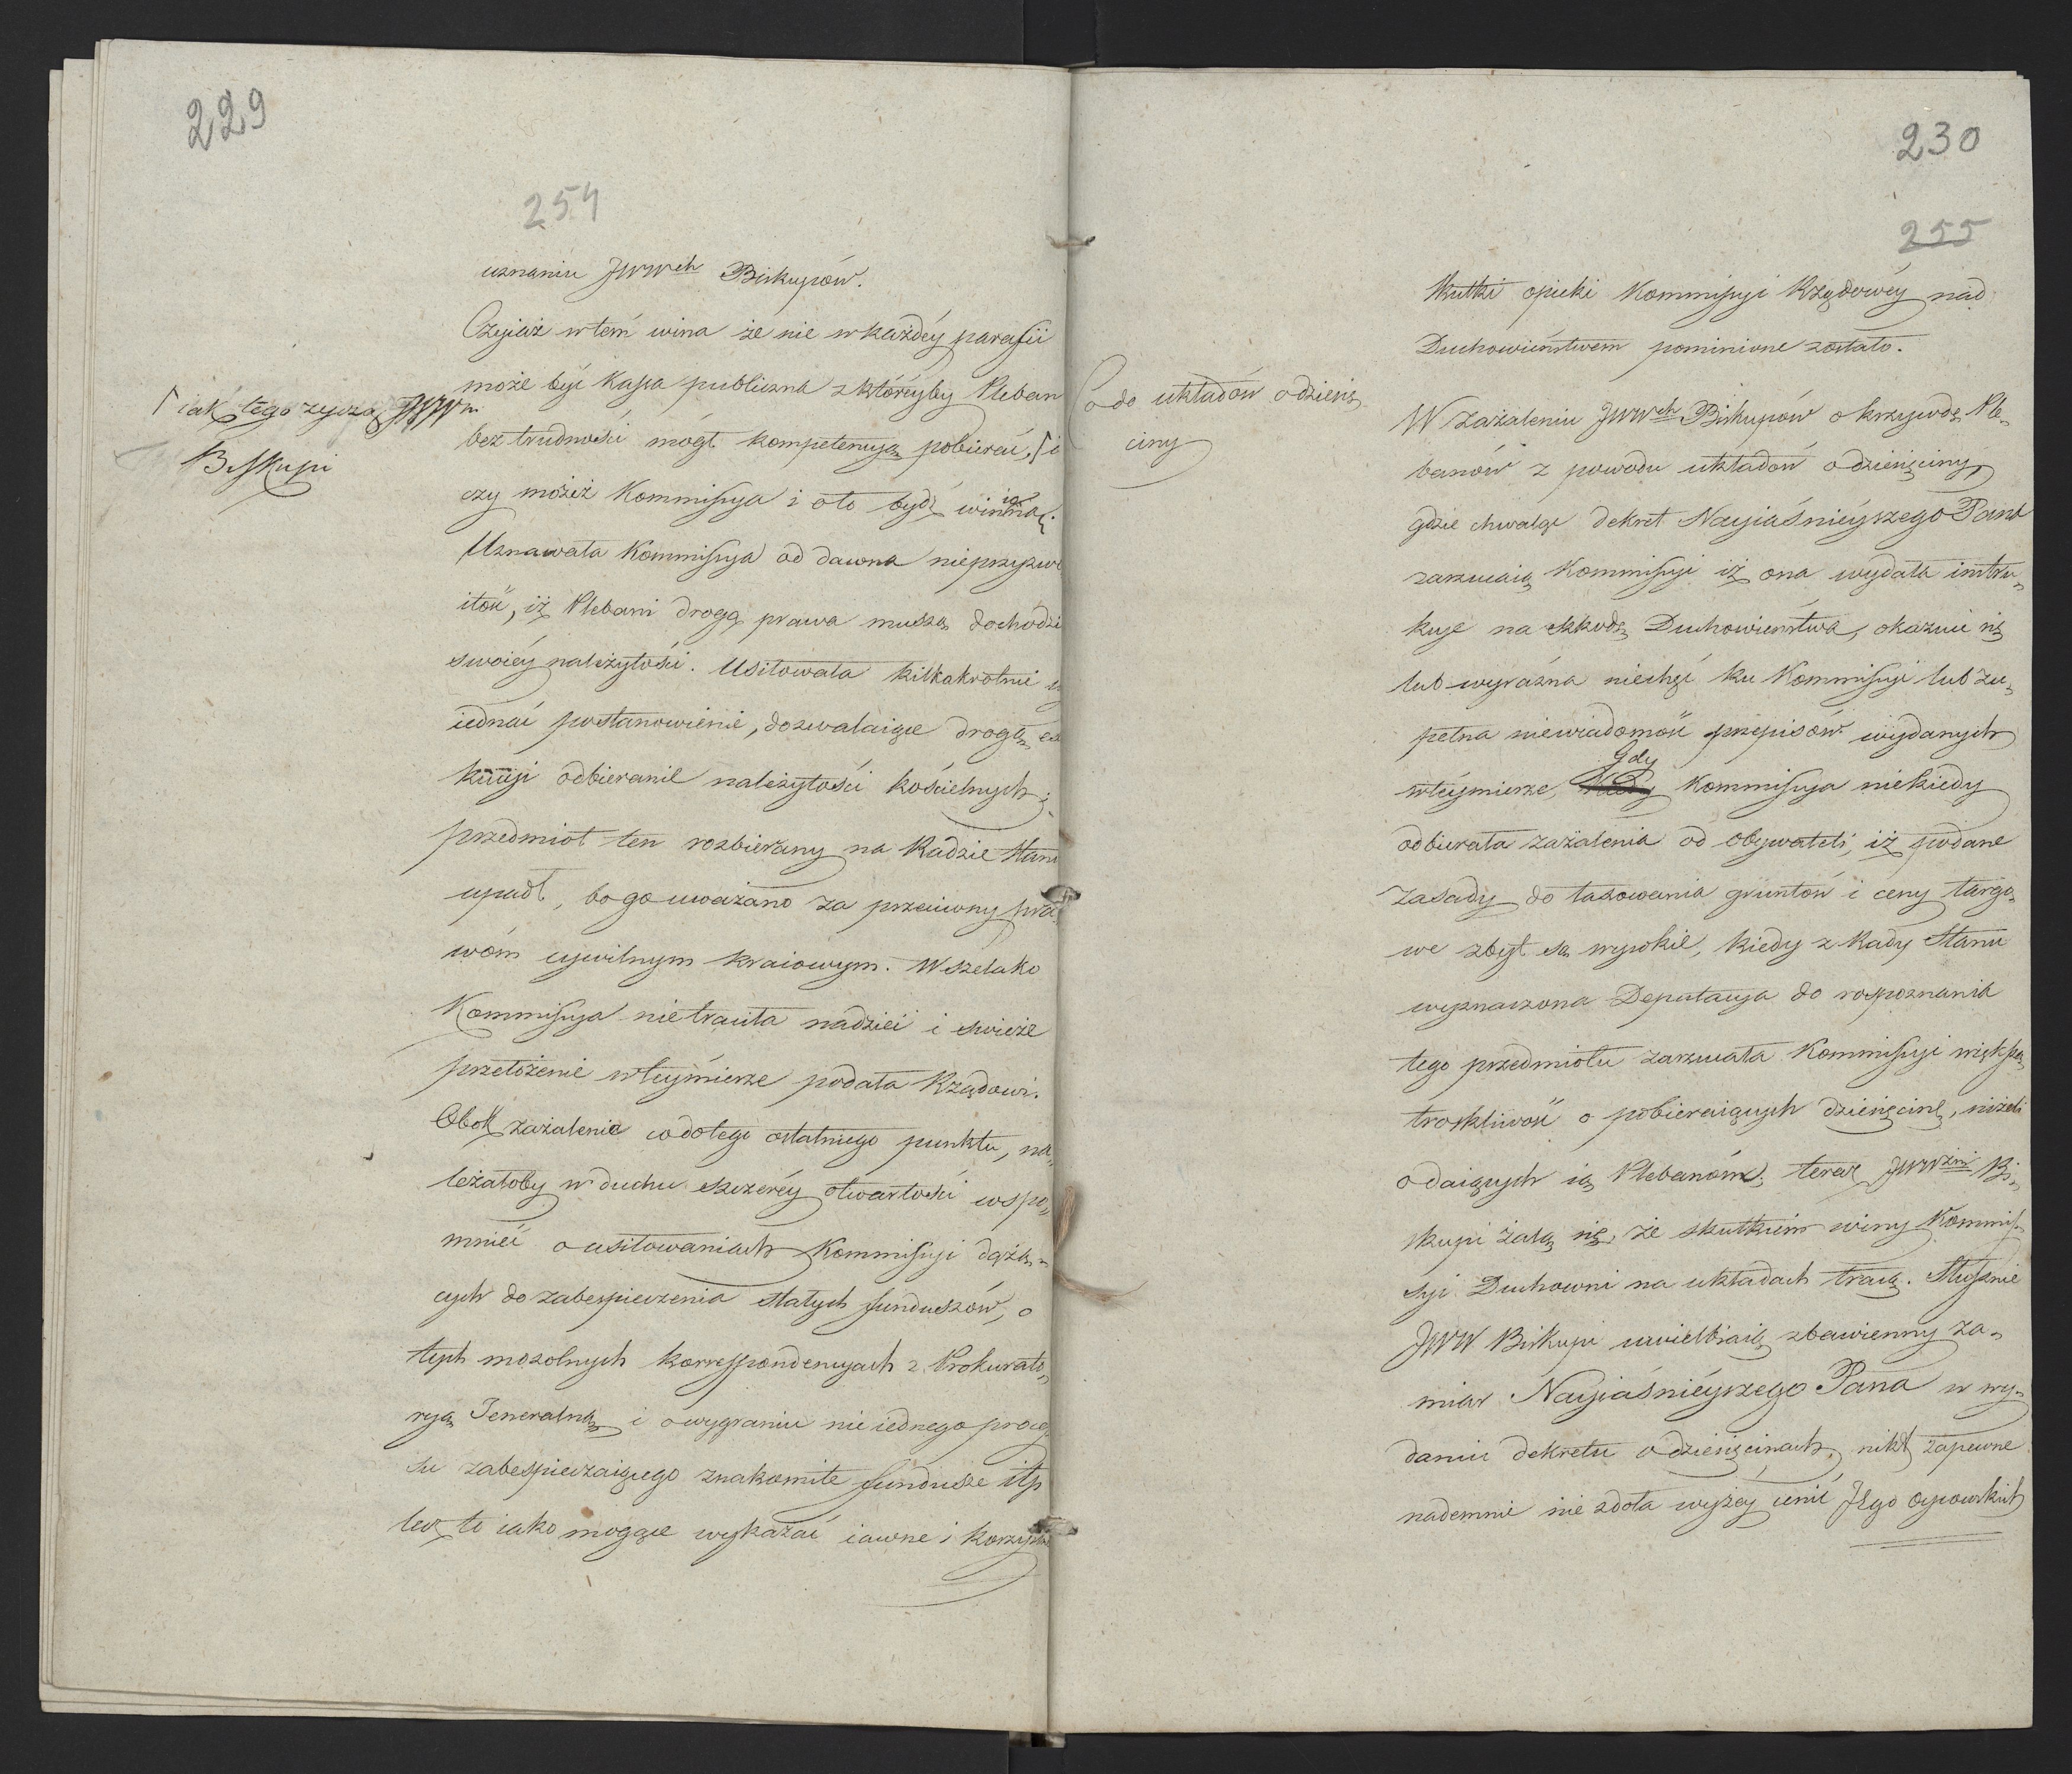 229
254
uznaniu JWWch Biskupów.
Czyiaż w tem wina że nie w każdéy parafii
może być Kassa publiczna z któréyby Pleban
bez trudności mógł kompetencyą pobierać, ⌈ i
⌈ iak tego zyczą JWWni
Biskupi
czy możeż Kommissya i oto bydź winna.
Uznawała Kommissya od dawna nieprzyzwo
itość, iż Plebani drogą prawa muszą dochodzi
swoiéy należytości. Usiłowała kilkakrotnie
iednać postanowienie, dozwalaiące drogą ex
kucyi odbieranie należytości kościelnych;
przedmiot ten rozbierany na Radzie Stanu
upadł, bo go uważano za przeciwny pra
wóm cywilnym kraiowym. Wszelako
Kommissya nie traciła nadziei i świeże
przełożenie w téymierze podała Rządowi.
Obok zażalenia co do tego ostatniego punktu, na„
leżałoby w duchu szczeréy otwartości wspo„
mnieć o usiłowaniach Kommissyi dążą„
cych do zabespieczenia stałych funduszów, o
tych mozolnych korrespondencyach z Prokurato„
ryą Jeneralną i o wygraniu nie iednego proces
su zabespieczaiącego znakomite fundusze itp
lecz to iako mogące wykazać iawne i korzystne
230
255
skutki opieki Kommissyi Rządowéy nad
Duchowieństwem pominione zostało.
Co do układów o dziesię
ciny
W zażaleniu JWWch Biskupów o krzywdę Ple„
banów z powodu układów o dziesięciny,
gdzie chwaląc dekret Nayiaśniéyszego Pana
zarzucaią Kommissyi iż ona wydała instru„
kcye na szkodę Duchowieństwa, okazuie się
lub wyraźna niechęć ku Kommissyi lub zu„
pełna niewiadomość przepisów wydanych
w téymierze, Gdy Kommissya niekiedy
odbierała zażalenia od obywateli, iż podane
zasady do taxowania gruntów i ceny targo„
we zbyt są wysokie, kiedy z Rady Stanu
wyznaczona Deputacya do rozpoznania
tego przedmiotu zarzucała Kommissyi większą
troskliwość o pobieraiących dziesięcinę, niżeli
o daiących ią Plebanóm; teraz JWWzni Bi„
skupi żalą się, że skutkiem winy Kommis„
syi Duchowni na układach tracą. Słusznie
JWW Biskupi uwielbiaią zbawienny za„
miar Nayiaśniéyszego Pana w wy„
daniu dekretu o dziesięcinach, nikt zapewne
nademnie nie zdoła wyżéy cenić Jego oycowskich